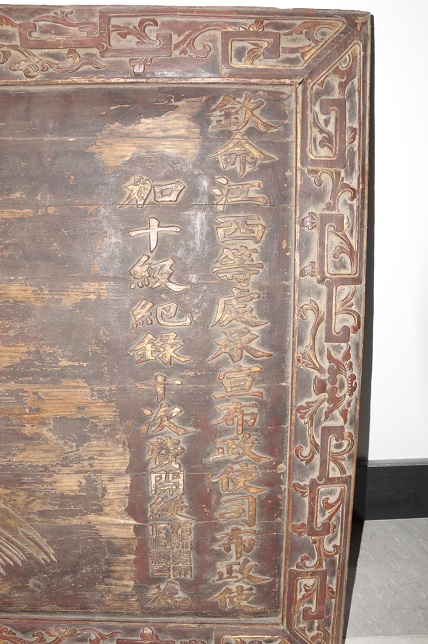 欽命江西等處承宣布政使司布政使
加十級紀錄十次